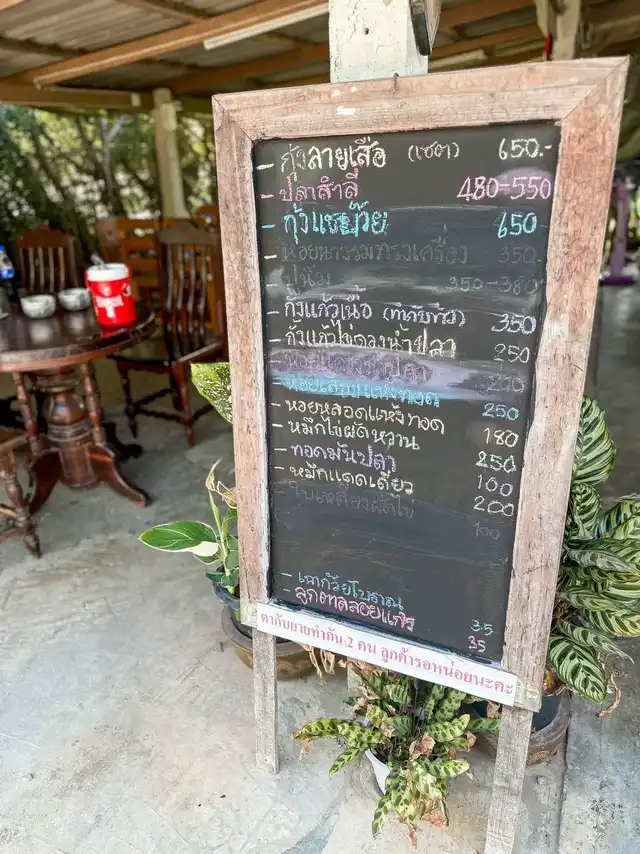 - กุ้งลายเสือ (เซตา) 650.-
- ปลาสำลี 480-550
- กุ้งแชบ๊วย 650
- หอยนางรมทรงเครื่อง 350.
- ปูนิ่ม 350-380
- กั้งแก้วเนื้อ 350
- กั้งแก้วไข่ดองน้ำปลา 250
250
- หอยเสียบแห้งทอด 250
- หอยหลอดแห้งทอด 180
- หมึกไข่ผัดหวาน 250
- ทอดมันปลา 100
- หมึกแดดเดียว 200
- ใบเหลียงผัดไข่ 100
- เฉาก๊วยโบราณ 35
- ลูกตาลลอยแก้ว 35
ตากับยายทำกัน 2 คน ลูกค้ารอหน่อยนะคะ